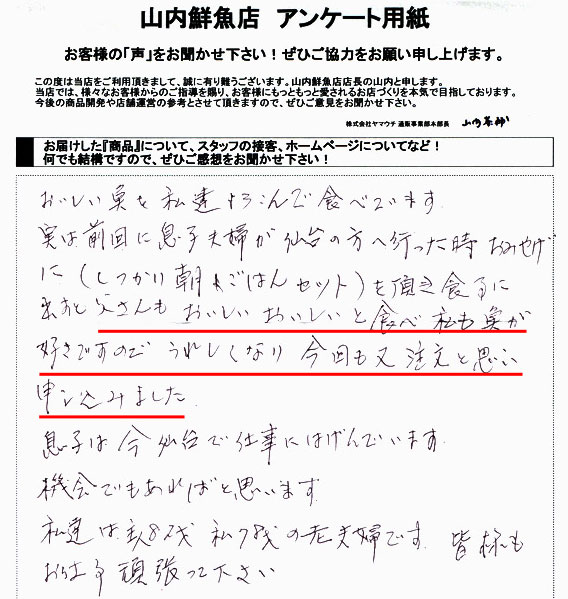 山内鮮魚店 アンケート用紙
お客様の「声」をお聞かせ下さい！ぜひご協力をお願い申し上げます。
この度は当店をご利用頂きまして、誠に有り難うございます。山内鮮魚店店長の山内と申します。
当店では、様々なお客様からのご指導を賜り、お客様にもっともっと愛されるお店づくりを本気で目指しております。
今後の商品開発や店舗運営の参考とさせて頂きますので、ぜひご意見をお聞かせ下さい。
株式会社ヤマウチ 通販事業部本部長
お届けした『商品』について、スタッフの接客、ホームページについてなど！
何でも結構ですので、ぜひご感想をお聞かせ下さい！
おいしい魚を私達よろこんで食べています
実は前回に息子夫婦が仙台の方へ行った時おみやげ
に（しっかり朝ごはんセット）を頂き食るに
父さんも おいしい おいしいと食べ 私も魚が
好きですので うれしくなり 今回も又注文と思い
申し込みました
息子は今仙台で仕事にはげんでいます
機会でもあればと思います
私達は 私78才の老夫婦です 皆様も
頑張って下さい